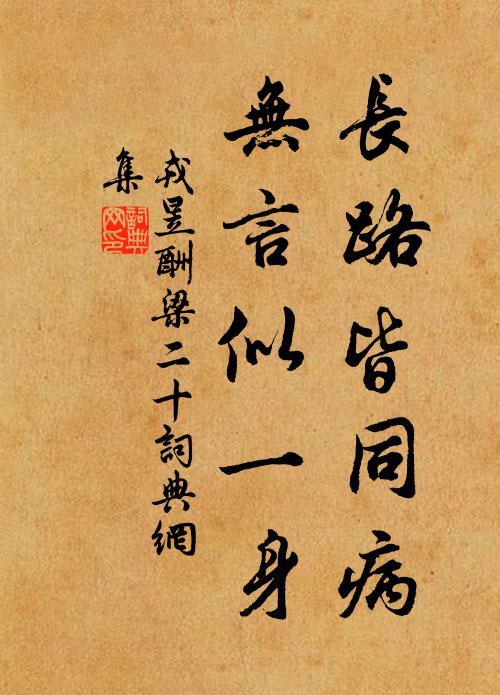 長路皆同病
無言似一身
戎昱酬梁二十詞典網
集
詞典
網印